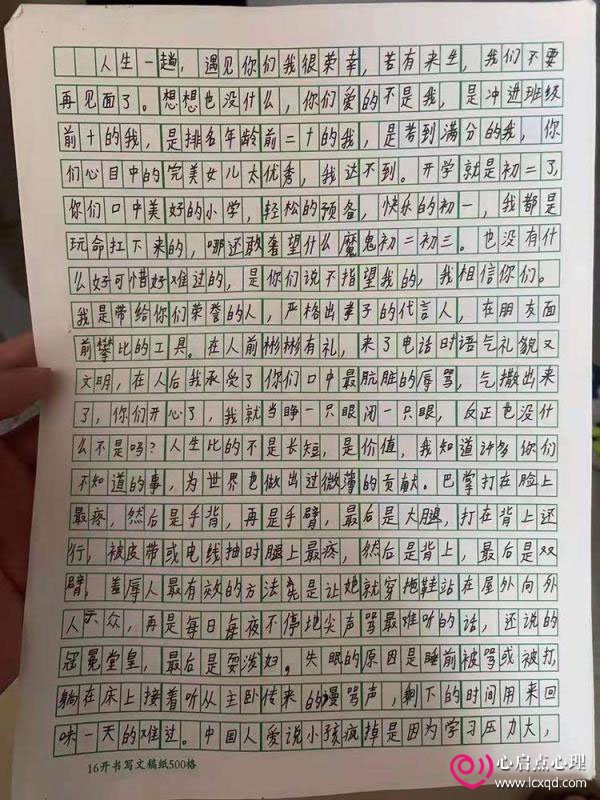 人生一趟，遇见你们我很荣幸，若有来生，我们不要
再见面了。想想也没什么，你们爱的不是我，是冲进班级
前十的我，是排名年龄前二十的我，是考到满分的我，你
们心目中的完美女儿太优秀，我达不到。开学就是初二了，
你们口中美好的小学，轻松的预备，快乐的初一，我都是
玩命扛下来的，哪还敢奢望什么魔鬼初二初三。也没有什
么好可惜好难过的，是你们说不指望我的，我相信你们。
我是带给你们荣誉的人，严格出孝子的代言人，在朋友面
前攀比的工具。在人前彬彬有礼，来了电话时语气礼貌又
文明，在人后我承受了你们口中最肮脏的辱骂，气撒出来
了，你们开心了，我就当睁一只眼闭一只眼，反正也没什
么不是吗？人生比的不是长短，是价值，我知道许多你们
不知道的事，为世界也做出过微薄的贡献。巴掌打在脸上
最疼，然后是手背，再是手臂，最后是大腿，打在背上还
行，被皮带或电线抽时腿上最疼，然后是背上，最后是双
臂，羞辱人最有效的方法竟是让她就穿拖鞋站在屋外向外
人示众，再是每日每夜不停地尖声骂最难听的话，还说的
冠冕堂皇，最后是耍泼妇。失眠的原因是睡前被骂或被打，
躺在床上接着听从主卧传来的谩骂声，剩下的时间用来回
味一天的难过。中国人爱说小孩疯掉是因为学习压力大，
16开书写文稿纸500格
心启点心理
www.lcxqd.com